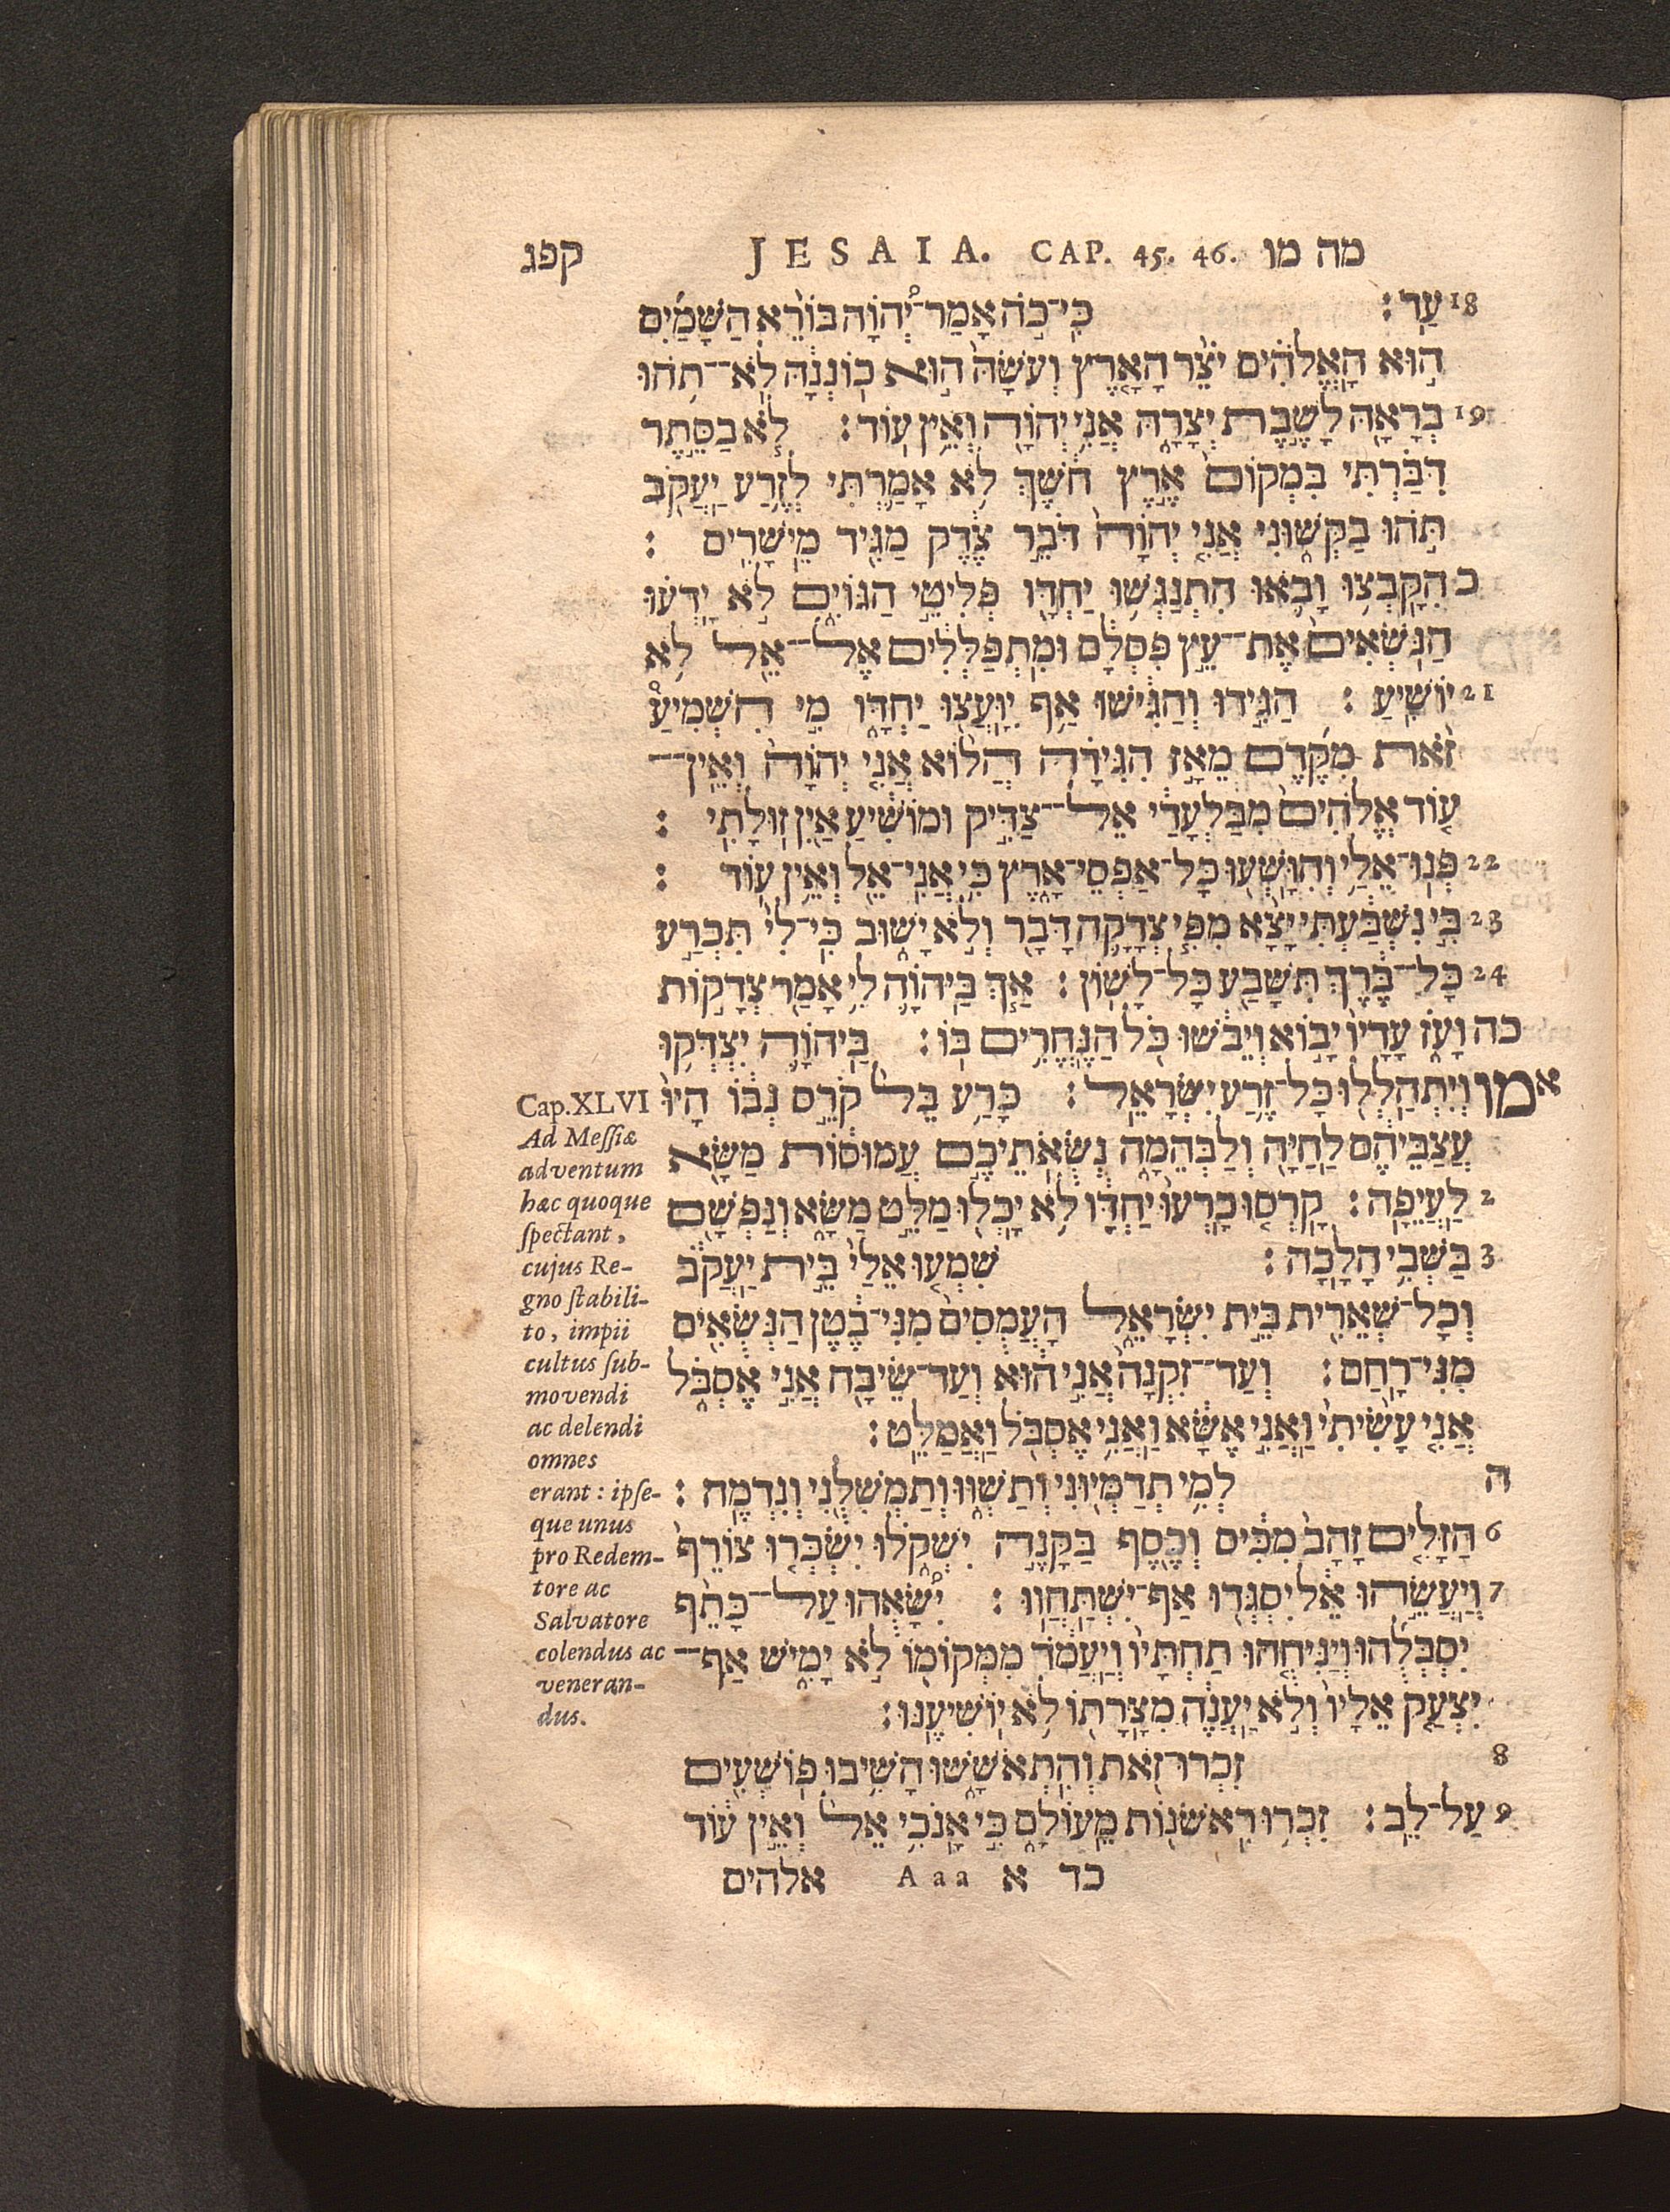 קפג JESAIA. CAP. 45. 46. מה מו
18 עַד׃ כִּי־כֹה אָמַר־יְהוָה בּוֹרֵא הַשָּׁמַיִם
הוּא הָאֱלֹהִים יֹצֵר הָאָרֶץ וְעֹשָׂהּ הוּא כוֹנְנָהּ לֹא־תֹהוּ
19 בְרָאָהּ לָשֶׁבֶת יְצָרָהּ אֲנִי יְהוָה וְאֵין עוֹד׃ לֹא בַסֵּתֶר
דִּבַּרְתִּי בִּמְקוֹם אֶרֶץ חֹשֶׁךְ לֹא אָמַרְתִּי לְזֶרַע יַעֲקֹב
תֹּהוּ בַקְּשׁוּנִי אֲנִי יְהוָה דֹּבֵר צֶדֶק מַגִּיד מֵישָׁרִים׃
כ הִקָּבְצוּ וָבֹאוּ הִתְנַגְּשׁוּ יַחְדָּו פְּלִיטֵי הַגּוֹיִם לֹא יָדְעוּ
הַנֹּשְׂאִים אֶת־עֵץ פִּסְלָם וּמִתְפַּלְלִים אֶל־אֵל לֹא
21 יוֹשִׁיעַ׃ הַגִּידוּ וְהַגִּישׁוּ אַף יִוָּעֲצוּ יַחְדָּו מִי הִשְׁמִיעַ
זֹאת מִקֶּדֶם מֵאָז הִגִּידָהּ הֲלוֹא אֲנִי יְהוָה וְאֵין־
עוֹד אֱלֹהִים מִבַּלְעָדַי אֵל־צַדִּיק וּמוֹשִׁיעַ אַיִן זוּלָתִי׃
22 פְּנוּ־אֵלַי וְהִוָּשְׁעוּ כָּל־אַפְסֵי־אָרֶץ כִּי אֲנִי־אֵל וְאֵין עוֹד׃
23 בִּי נִשְׁבַּעְתִּי יָצָא מִפִּי צְדָקָה דָּבָר וְלֹא יָשׁוּב כִּי־לִי תִּכְרַע
24 כָּל־בֶּרֶךְ תִּשָּׁבַע כָּל־לָשׁוֹן׃ אַךְ בַּיהוָה לִי אָמַר צְדָקוֹת
כה וָעֹז עָדָיו יָבוֹא וְיֵבֹשׁוּ כֹּל הַנֶּחֱרִים בּוֹ׃ בַּיהוָה יִצְדְּקוּ
א מו וְיִתְהַלְלוּ כָּל־זֶרַע יִשְׂרָאֵל׃ כָּרַע בֵּל קֹרֵס נְבוֹ הָיוּ
עֲצַבֵּיהֶם לַחַיָּה וְלַבְּהֵמָה נְשֻׂאֹתֵיכֶם עֲמוּסוֹת מַשָּׂא
2 לַעֲיֵפָה׃ קָרְסוּ כָרְעוּ יַחְדָּו לֹא יָכְלוּ מַלֵּט מַשָּׂא וְנַפְשָׁם
3 בַּשְּׁבִי הָלָכָה׃ שִׁמְעוּ אֵלַי בֵּית יַעֲקֹב
וְכָל־שְׁאֵרִית בֵּית יִשְׂרָאֵל הָעֲמֻסִים מִנִּי־בֶטֶן הַנְּשֻׂאִים
מִנִּי־רָחַם׃ וְעַד־זִקְנָה אֲנִי הוּא וְעַד־שֵׂיבָה אֲנִי אֶסְבֹּל
אֲנִי עָשִׂיתִי וַאֲנִי אֶשָּׂא וַאֲנִי אֶסְבֹּל וַאֲמַלֵּט׃
ה לְמִי תְדַמְּיוּנִי וְתַשְׁווּ וְתַמְשִׁלֻנִי וְנִדְמֶה׃
6 הַזָּלִים זָהָב מִכִּיס וְכֶסֶף בַּקָּנֶה יִשְׁקֹלוּ יִשְׂכְּרוּ צוֹרֵף
7 וְיַעֲשֵׂהוּ אֵל יִסְגְּדוּ אַף־יִשְׁתַּחֲווּ׃ יִשָּׂאֻהוּ עַל־כָּתֵף
יִסְבְּלֻהוּ וְיַנִּיחֻהוּ תַחְתָּיו וְיַעֲמֹד מִמְּקוֹמוֹ לֹא יָמִישׁ אַף־
יִצְעַק אֵלָיו וְלֹא יַעֲנֶה מִצָּרָתוֹ לֹא יוֹשִׁיעֶנּוּ׃
8 זִכְרוּ־זֹאת וְהִתְאֹשָׁשׁוּ הָשִׁיבוּ פוֹשְׁעִים
9 עַל־לֵב׃ זִכְרוּ רִאשֹׁנוֹת מֵעוֹלָם כִּי אָנֹכִי אֵל וְאֵין עוֹד
כד א Aaa אלהים
Cap. XLVI
Ad Messiæ
adventum
hæc quoque
spectant,
cujus Re-
gno stabili-
to, impii
cultus sub-
movendi
ac delendi
omnes
erant: ipse-
que unus
pro Redem-
tore ac
Salvatore
colendus ac
veneran-
dus.